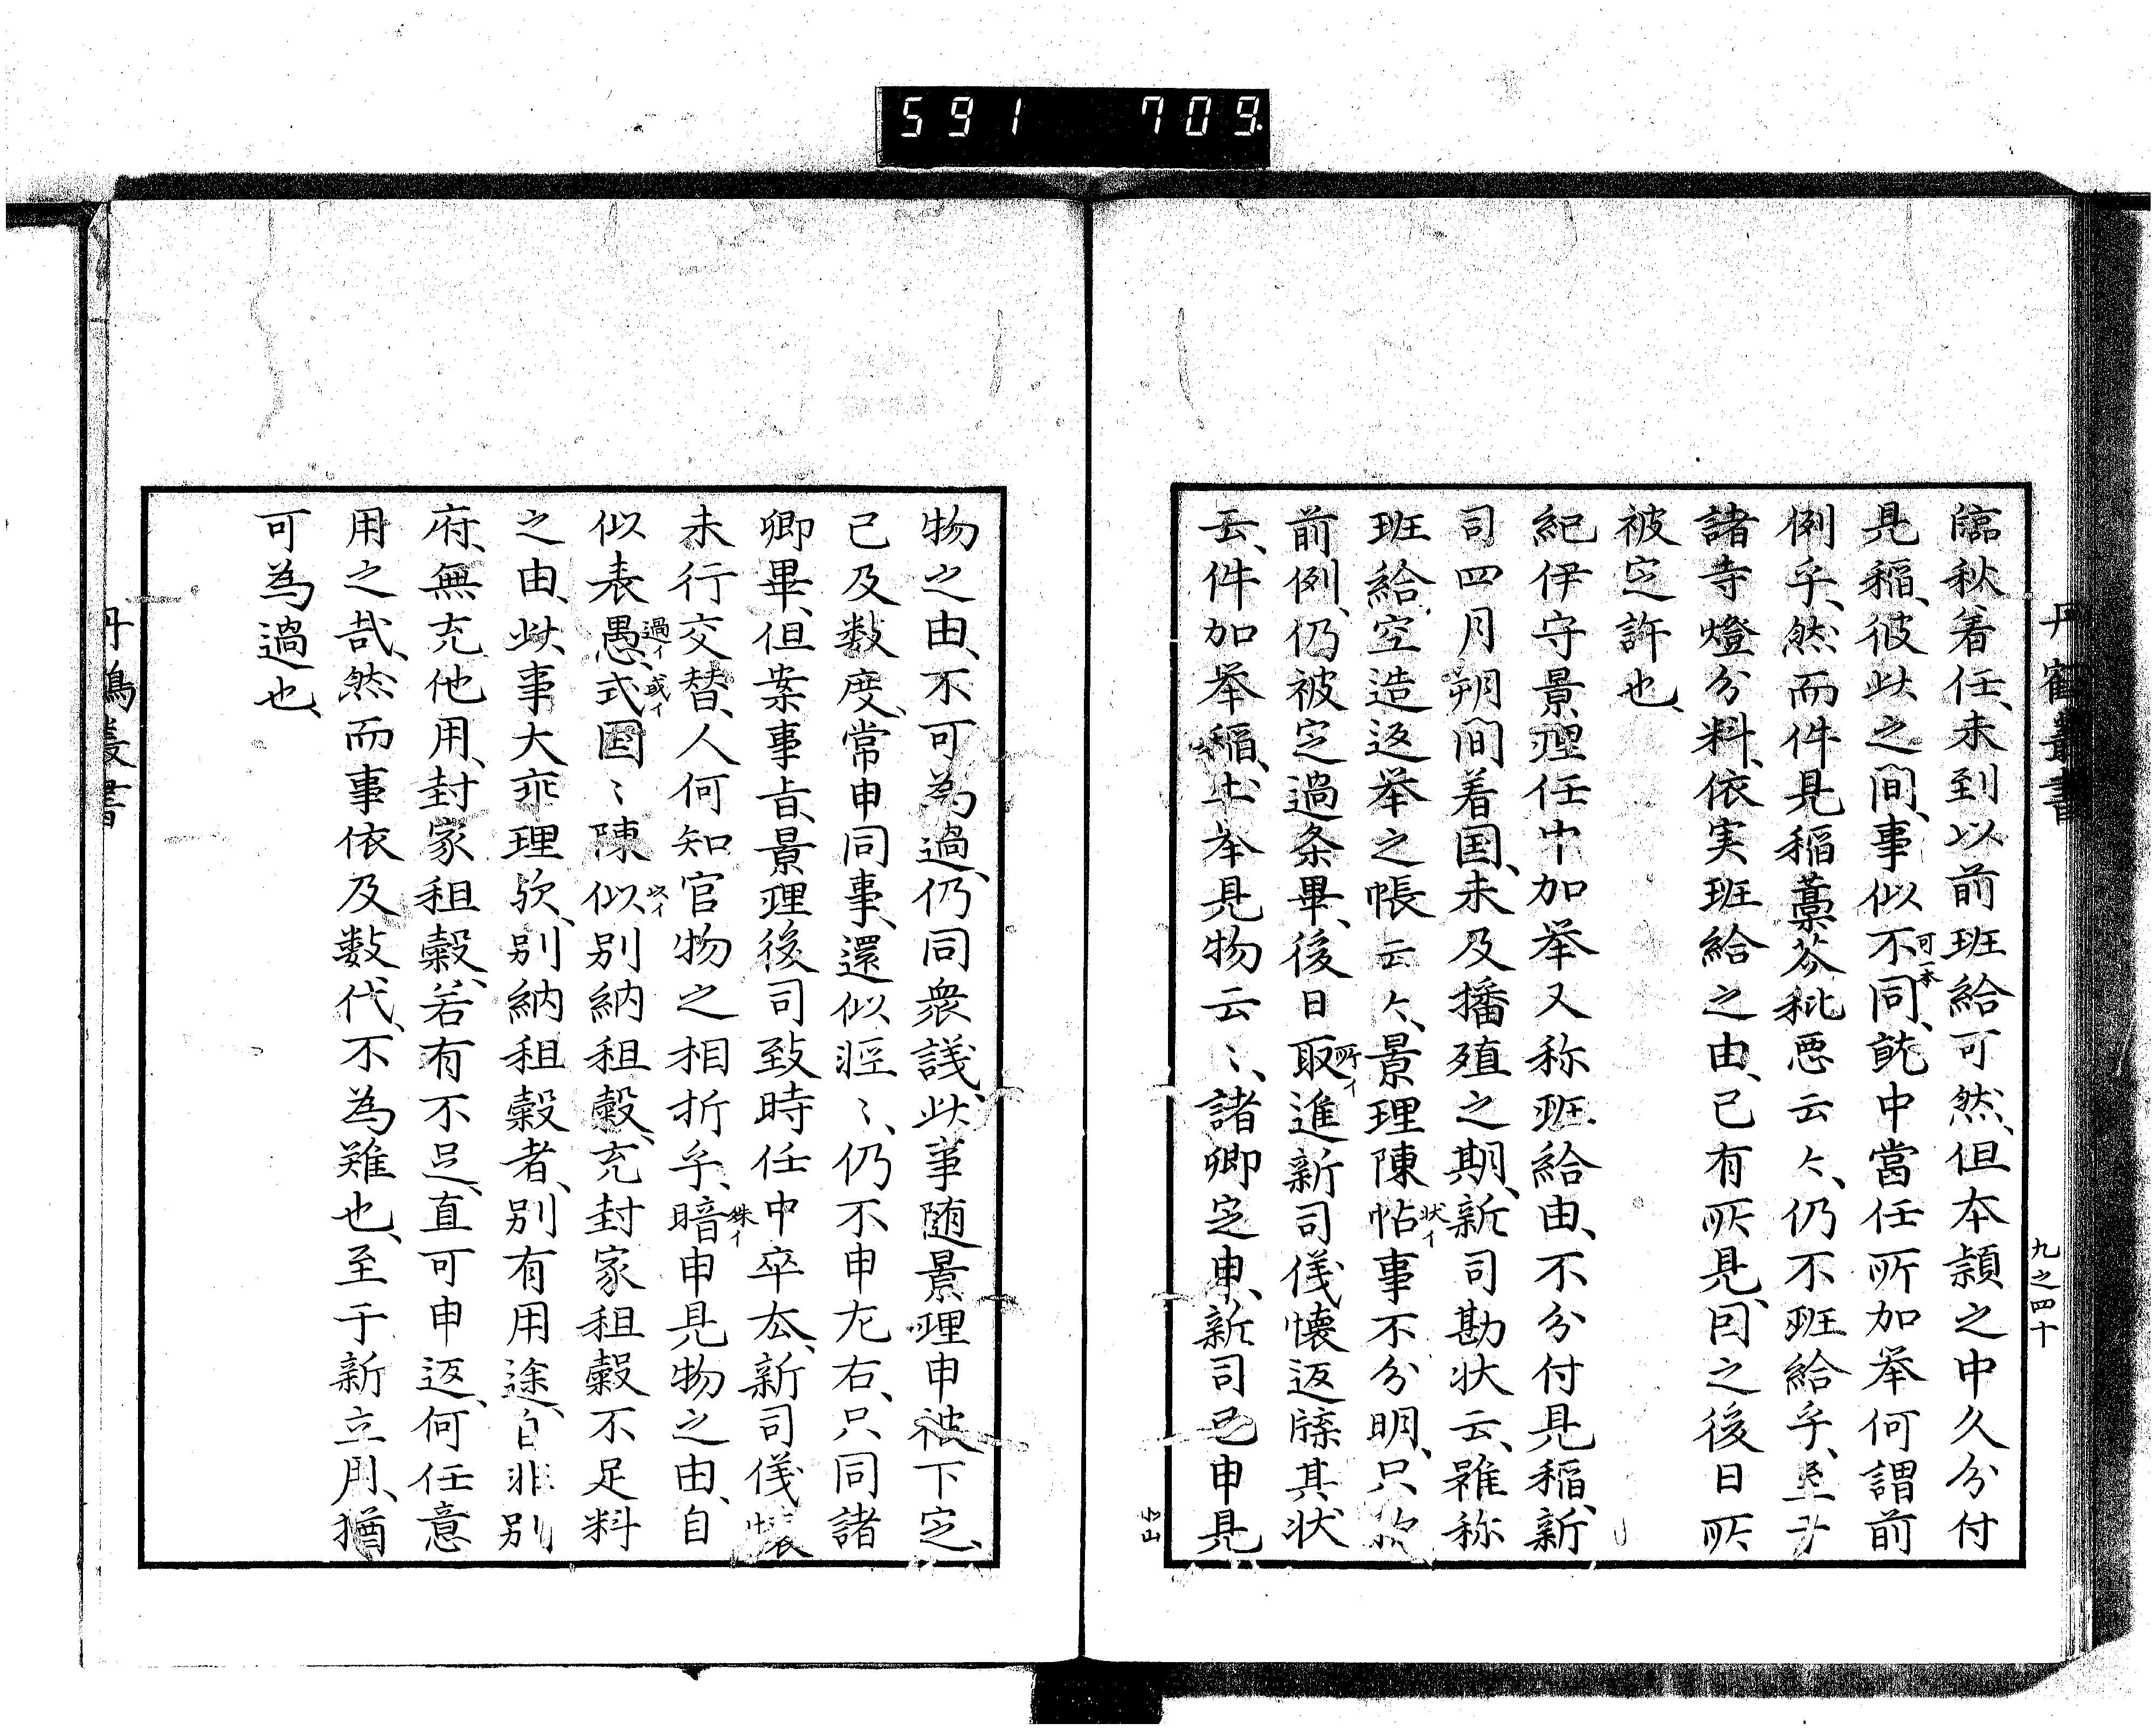 591 709
丹鶴叢書
九之四十
臨秋着任、未到以前班給可然、但本頴之中久分付
見稲、彼此之間、事似不同、可一本 既中當任所加挙何謂前
例乎、然而件見稲藁芥秕悪云々、仍不班給乎、至于
諸寺燈分料、依実班給之由、已有所見、因之後日所
被定許也、
紀伊守景理任中加挙又称班給由、不分付見稲、新
司四月朔間着国、未及播殖之期、新司勘状云、雖称
班給空造返挙之帳云々、景理陳帖状イ事不分明、只
前例、仍被定過条畢、後日取所イ進新司儀懐返牒其状
云、件加挙稲、本見物云々、諸卿定申、新司已申見
物之由、不可為過、仍同衆議、此事随景理申被下定、
已及数度、常申同事、還似狂々、仍不申左右、只同諸
卿畢、但案事旨、景理後司致時任中卒去、新司儀懐
未行交替、人何知官物之相折乎、暗殊イ申見物之由、自
似表愚、過イ式或イ国々陳似以イ別納租穀、充封家租穀不足料
之由、此事大乖理欤、別納租穀者、別有用途、自非別
府、無充他用、封家租穀、若有不足、直可申返、何任意
用之哉、然而事依及数代、不為難也、至于新立用、猶
可為過也、
丹鶴叢書